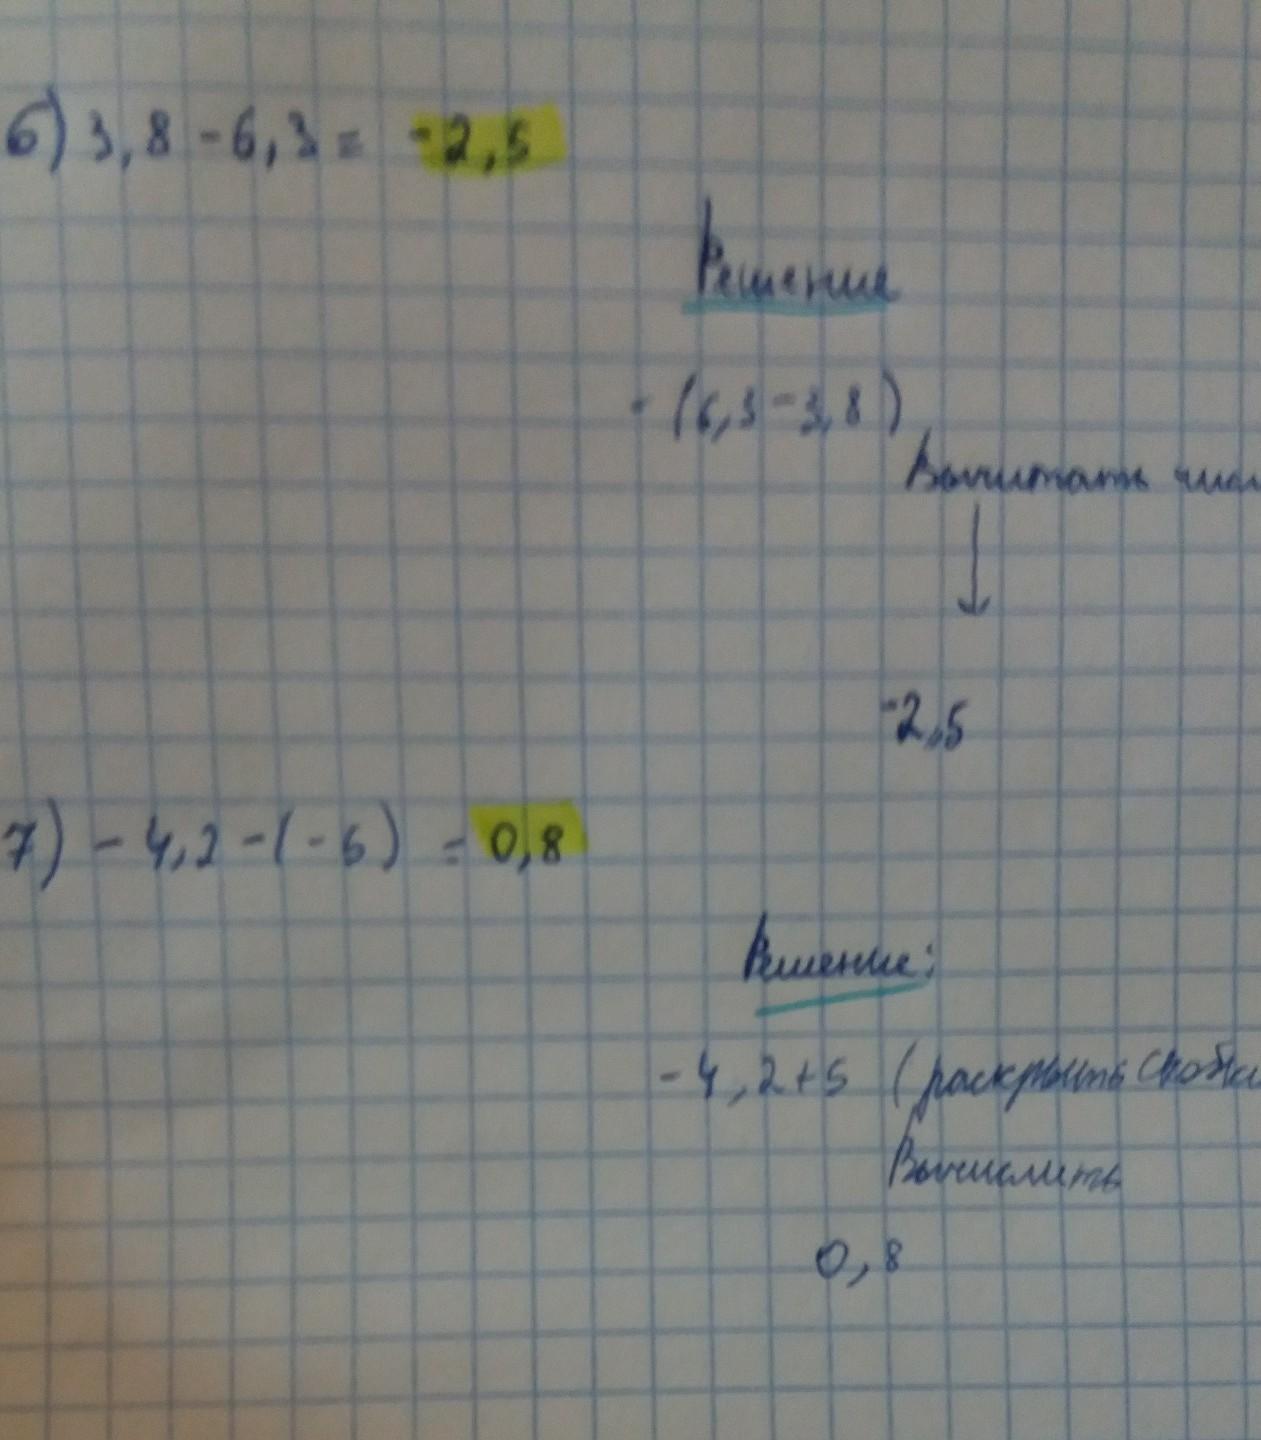 6) 3,8 - 6,3 = -2,5
Решение
- (6,3 - 3,8)
Вычитать
-2,5
7) - 4,2 - (- 5) = 0,8
Решение:
- 4,2 + 5 (раскрыть скобки
Вычислить
0,8